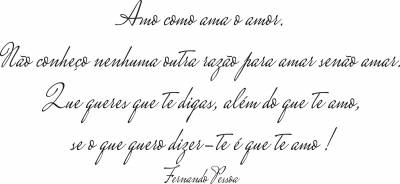 Amo como ama o amor.
Não conheço nenhuma outra razão para amar senão amar.
Que queres que te digas, além do que te amo,
se o que quero dizer-te é que te amo !
Fernando Pessoa